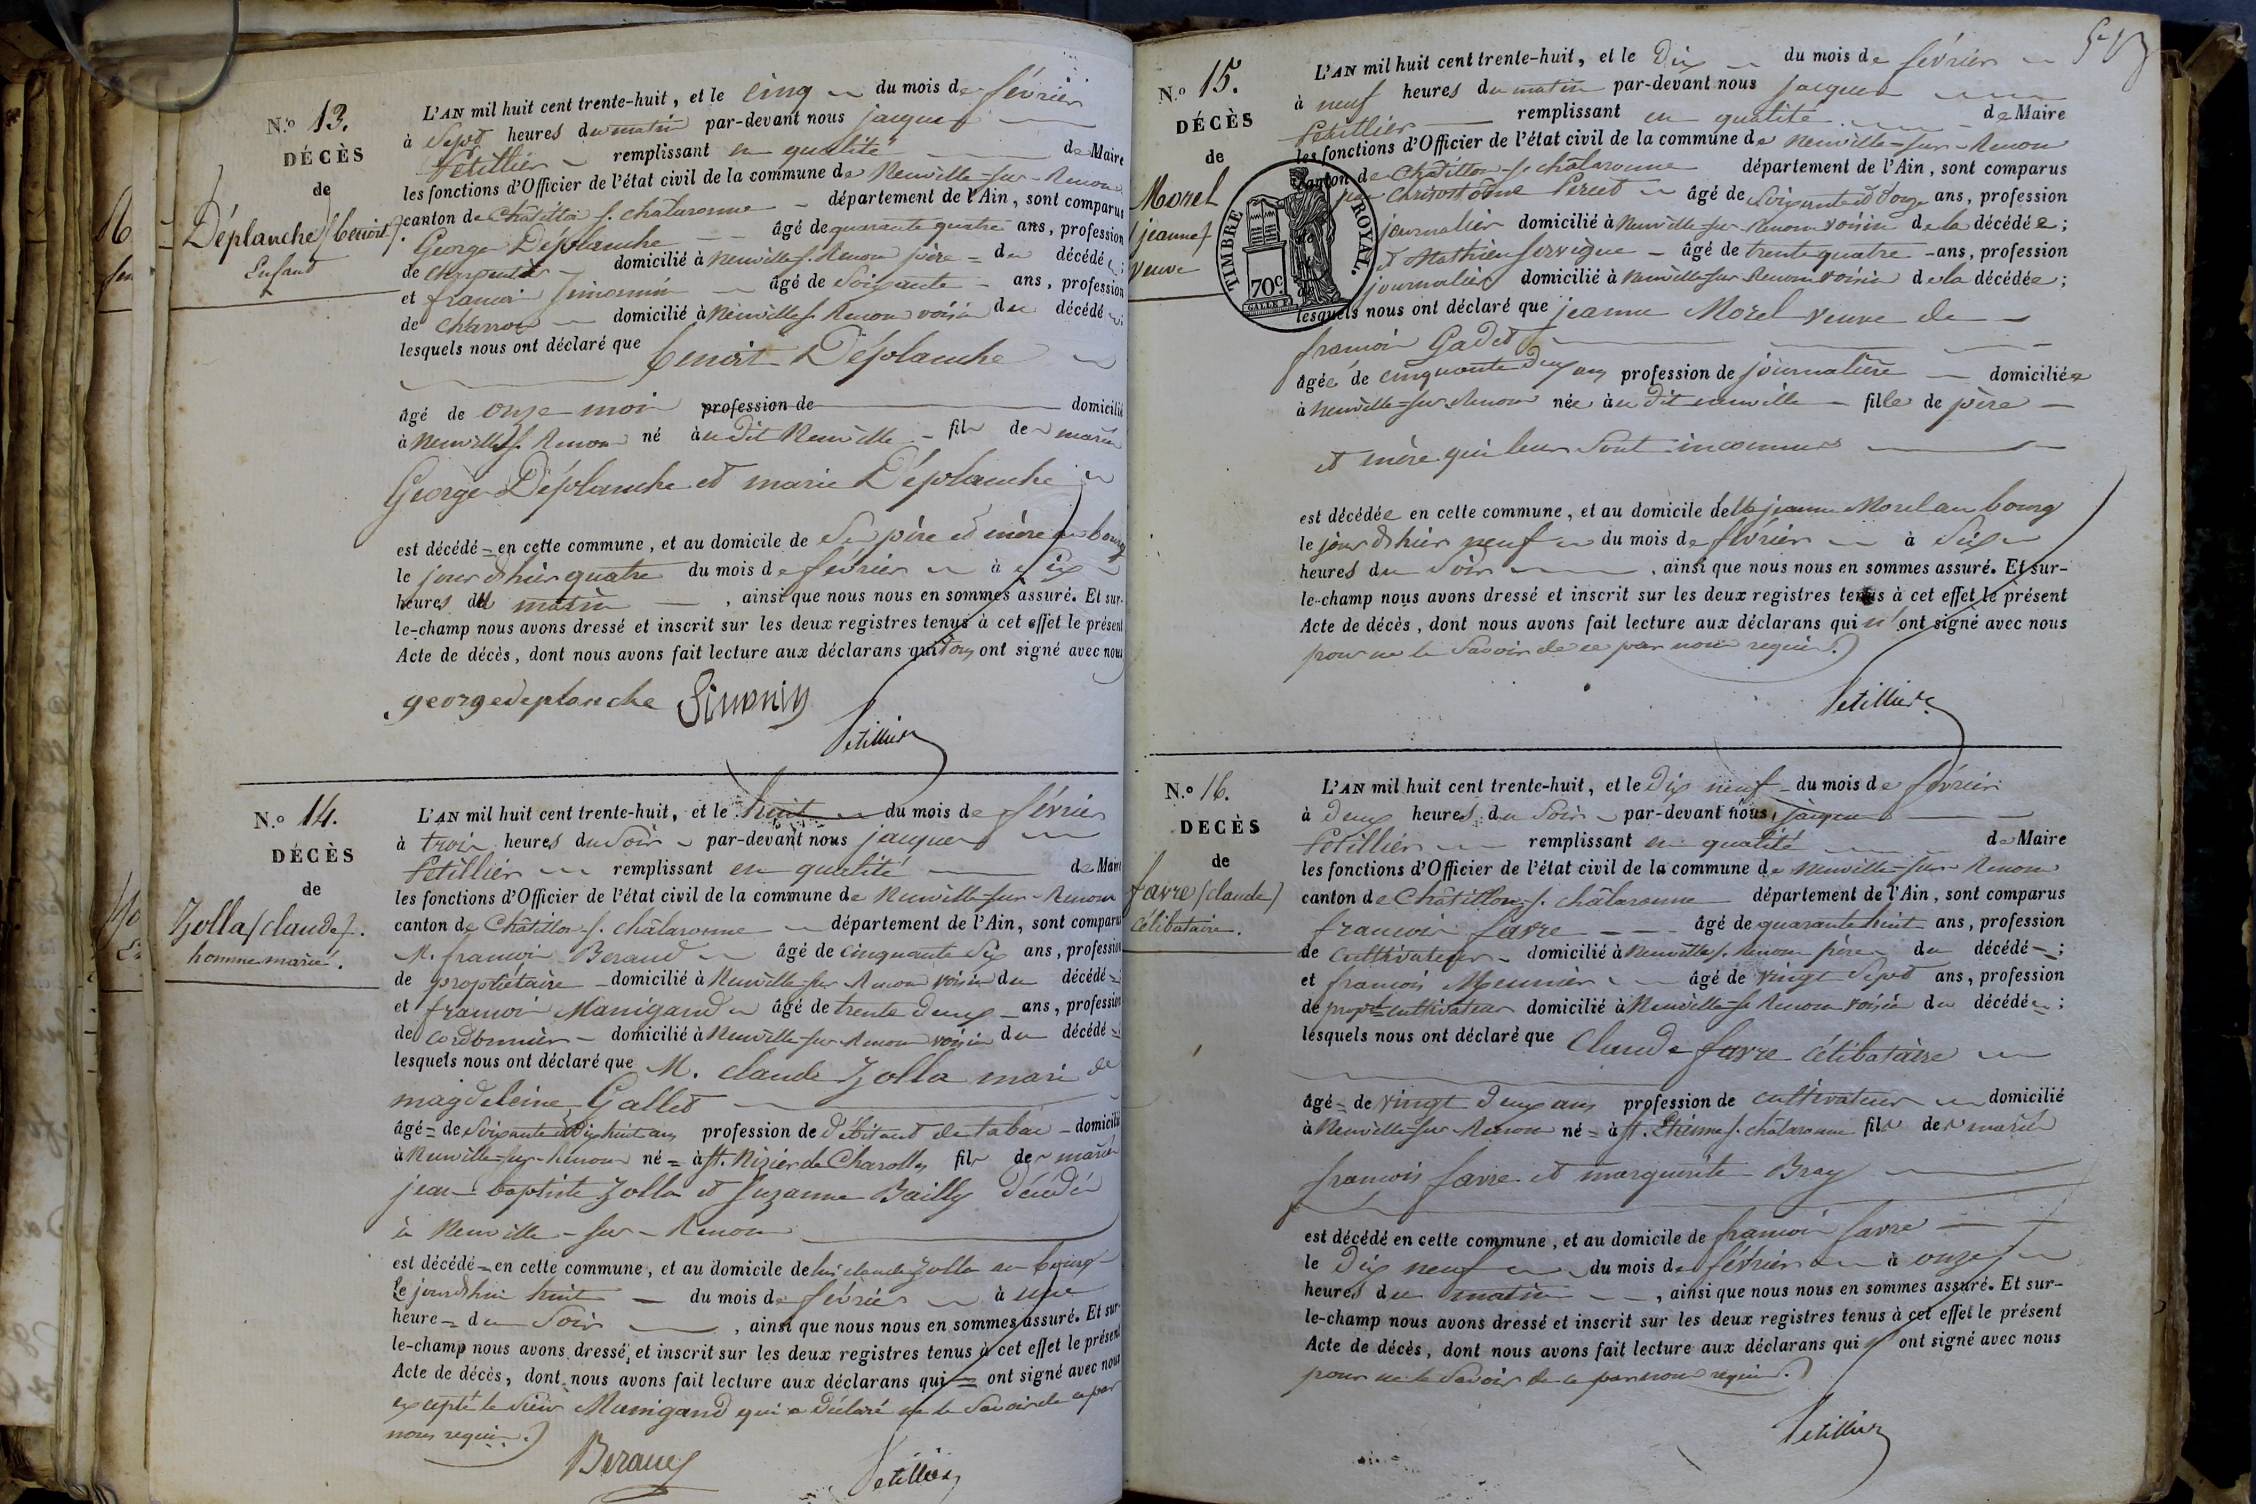 N.o 13.
DÉCÈS
de
Déplanche (benoit)
Enfant
L'AN mil huit cent trente-huit, et le cinq du mois de février
à sept heures du matin par-devant nous jacques
Petillier remplissant en qualité de Maire
les fonctions d'Officier de l'état civil de la commune de Neuville-sur-Renom
canton de Châtillon s. châlaronne département de l'Ain, sont comparus
George Déplanche âgé de quarante quatre ans, profession
de charpentier domicilié à Neuville s. Renom père du décédé ;
et françois Simonnin âgé de soixante ans, profession
de charron domicilié à Neuville s. Renom voisin du décédé ;
lesquels nous ont déclaré que benoit Déplanche
âgé de onze mois profession de domicilié
à Neuville s. Renom né au dit Neuville fils de mariés
George Déplanche et marie Déplanche
est décédé en cette commune, et au domicile de ses père et mère au bourg
le jour d'hier quatre du mois de février à six
heures du matin, ainsi que nous nous en sommes assuré. Et sur-
le-champ nous avons dressé et inscrit sur les deux registres tenus à cet effet le présent
Acte de décès, dont nous avons fait lecture aux déclarans qui tous ont signé avec nous
georgedeplanche Simonin
Petillier
N.o 14.
DÉCÈS
de
Zolla (claude).
homme marié.
L'AN mil huit cent trente-huit, et le huit du mois de février
à trois heures du soir par-devant nous jacques
Petillier remplissant en qualité de Maire
les fonctions d'Officier de l'état civil de la commune de Neuville-sur-Renom
canton de Châtillon s. châlaronne département de l'Ain, sont comparus
M. françois Beraud âgé de cinquante six ans, profession
de propriétaire domicilié à Neuville-sur Renom voisin du décédé ;
et françois Manigand âgé de trente deux ans, profession
de cordonnier domicilié à Neuville-sur Renom voisin du décédé ;
lesquels nous ont déclaré que M. claude Zolla mari de
magdeleine Gallet
âgé de soixante et dix huit ans profession de débitant de tabac domicilié
à Neuville-sur-Renom né à St. Nizier de Charolles fils de mariés
jean-baptiste Zolla et Suzanne Bailly décédés
à Neuville-sur-Renom
est décédé en cette commune, et au domicile de lui claude Zolla au bourg
le jourd'hui huit du mois de février à une
heure du soir, ainsi que nous nous en sommes assuré. Et sur-
le-champ nous avons dressé et inscrit sur les deux registres tenus à cet effet le présent
Acte de décès, dont nous avons fait lecture aux déclarans qui ont signé avec nous
excepté le Sieur Manigand qui a déclaré ne le savoir de ce par
nous requis.
Beraud Petillier
N.o 15.
DÉCÈS
de
Morel
(jeanne)
veuve
TIMBRE ROYAL.
70c.
L'AN mil huit cent trente-huit, et le dix du mois de février
à neuf heures du matin par-devant nous jacques
Petillier remplissant en qualité de Maire
les fonctions d'Officier de l'état civil de la commune de Neuville-sur-Renom
canton de Châtillon-s. châlaronne département de l'Ain, sont comparus
Chrisostome Percet âgé de soixante et onze ans, profession
journalier domicilié à Neuville-sur-Renom voisin de la décédée ;
et Mathieu servigne âgé de trente quatre ans, profession
journalier domicilié à Neuville-sur Renom voisin de la décédée ;
lesquels nous ont déclaré que jeanne Morel veuve de
françois Gadet
âgée de cinquante deux ans profession de journalière domiciliée
à Neuville-sur Renom née au dit neuville fille de père
et mère qui leur sont inconnus
est décédée en cette commune, et au domicile de lle jeanne Morel au bourg
le jour d'hier neuf du mois de février à six
heures du soir, ainsi que nous nous en sommes assuré. Et sur-
le-champ nous avons dressé et inscrit sur les deux registres tenus à cet effet le présent
Acte de décès, dont nous avons fait lecture aux déclarans qui n'ont signé avec nous
pour ne le savoir de ce par nous requis.
Petillier
N.o 16.
DÉCÈS
de
favre (claude)
célibataire.
L'AN mil huit cent trente-huit, et le dix neuf du mois de février
à deux heures du soir par-devant nous, jacques
Petillier remplissant en qualité de Maire
les fonctions d'Officier de l'état civil de la commune de Neuville-sur-Renom
canton de Châtillon-s. châlaronne département de l'Ain, sont comparus
françois favre âgé de quarante huit ans, profession
de cultivateur domicilié à Neuville s. Renom père du décédé ;
et françois Meunier âgé de vingt sept ans, profession
de propre cultivateur domicilié à Neuville-s. Renom voisin du décédé ;
lesquels nous ont déclaré que Claude favre célibataire
âgé de vingt deux ans profession de cultivateur domicilié
à Neuville-sur Renom né à St. Etienne s. châlaronne fils de mariés
françois favre et marguerite Bray
est décédé en cette commune, et au domicile de françois favre
le dix neuf du mois de février à onze
heures du matin, ainsi que nous nous en sommes assuré. Et sur-
le-champ nous avons dressé et inscrit sur les deux registres tenus à cet effet le présent
Acte de décès, dont nous avons fait lecture aux déclarans qui n'ont signé avec nous
pour ne le savoir de ce par nous requis.
Petillier